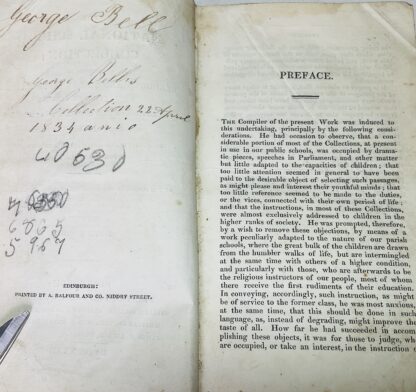 George Bell
George Bells
Collection 22 April
1834 anio
20530
6865
5967
EDINBURGH:
PRINTED BY A. BALFOUR AND CO. NIDDRY STREET.
PREFACE.
THE Compiler of the present Work was induced to
this undertaking, principally by the following consi-
derations. He had occasion to observe, that a con-
siderable portion of most of the Collections, at present
in use in our public schools, was occupied by drama-
tic pieces, speeches in Parliament, and other matter
but little adapted to the capacities of children; that
too little attention seemed in general to have been
paid to the desirable object of selecting such passages,
as might please and interest their youthful minds; that
too little reference seemed to be made to the duties,
or the vices, connected with their own period of life;
and that the instructions, in most of these Collections,
were almost exclusively addressed to children in the
higher ranks of society. He was prompted, therefore,
by a wish to remove these objections, by means of a
work peculiarly adapted to the nature of our parish
schools, where the great bulk of the children are drawn
from the humbler walks of life, but are intermingled
at the same time with others of a higher condition,
and particularly with those, who are afterwards to be
the religious instructors of our people, most of whom
there receive the first rudiments of their education.
In conveying, accordingly, such instruction, as might
be of service to the former class, he was most anxious,
at the same time, that this should be done in such
language, as, instead of degrading, might improve the
taste of all. How far he had succeeded in accom
plishing these objects, it was for those to judge, wh
are occupied, or take an interest, in the instruction o